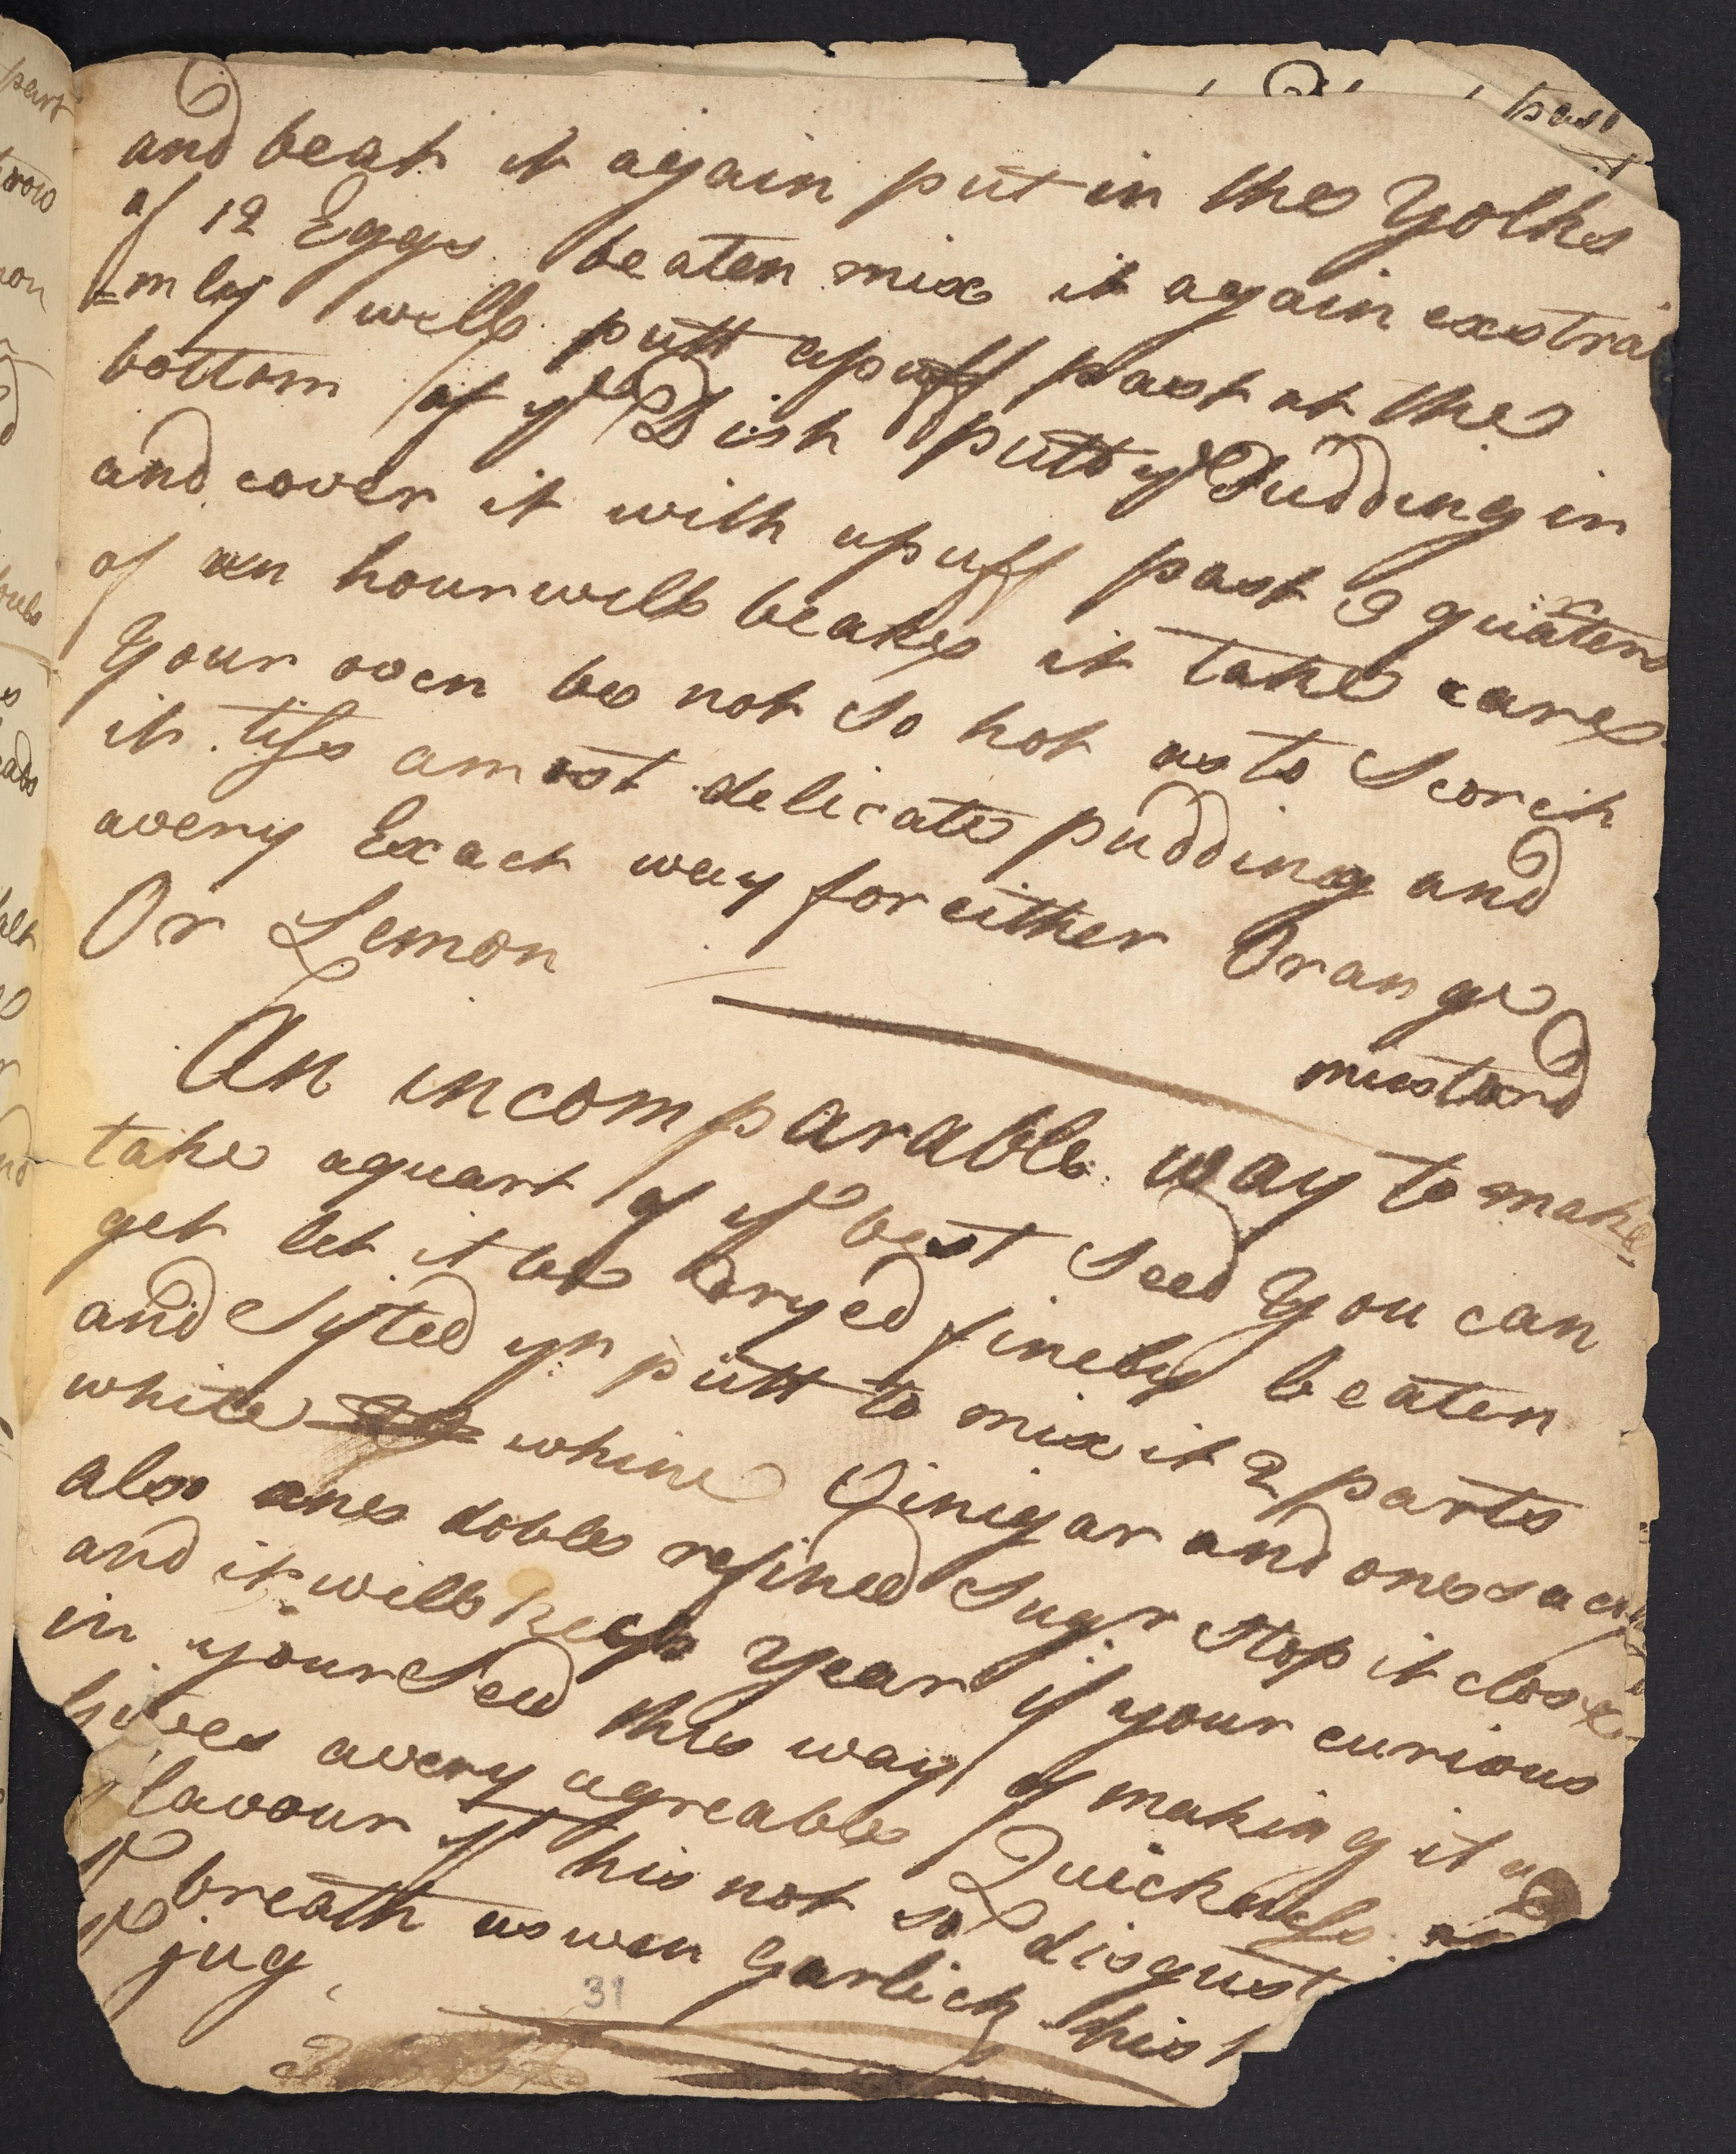 and beat it again put in the Yolks
of 12 Eggs beaten mix it again exstrai
=mly well putt apuff past at the
bottom of ye Dish putt ye Pudding in
and cover it with apuff past 3 quaters
of an hour will beake it take care
Your oven be not so hot as to Scorch
it tiss amost delicate pudding and
avery Exact way for either Orange
Or Lemon
mustard
An incomparable way to make
take aquart of ye best Seed You can
get let it be dryed finely beaten
and Syfted yn putt to mix it 2 parts
white whine Vinigar and one sack
also one doble refined Sugr Stop it close
and it will keep Year if your curious
in your Seed this way of making it
hives avery agreable Quickness
flavour yt his not so disgust
ye breath as wen Garlick hist
ye jug
31